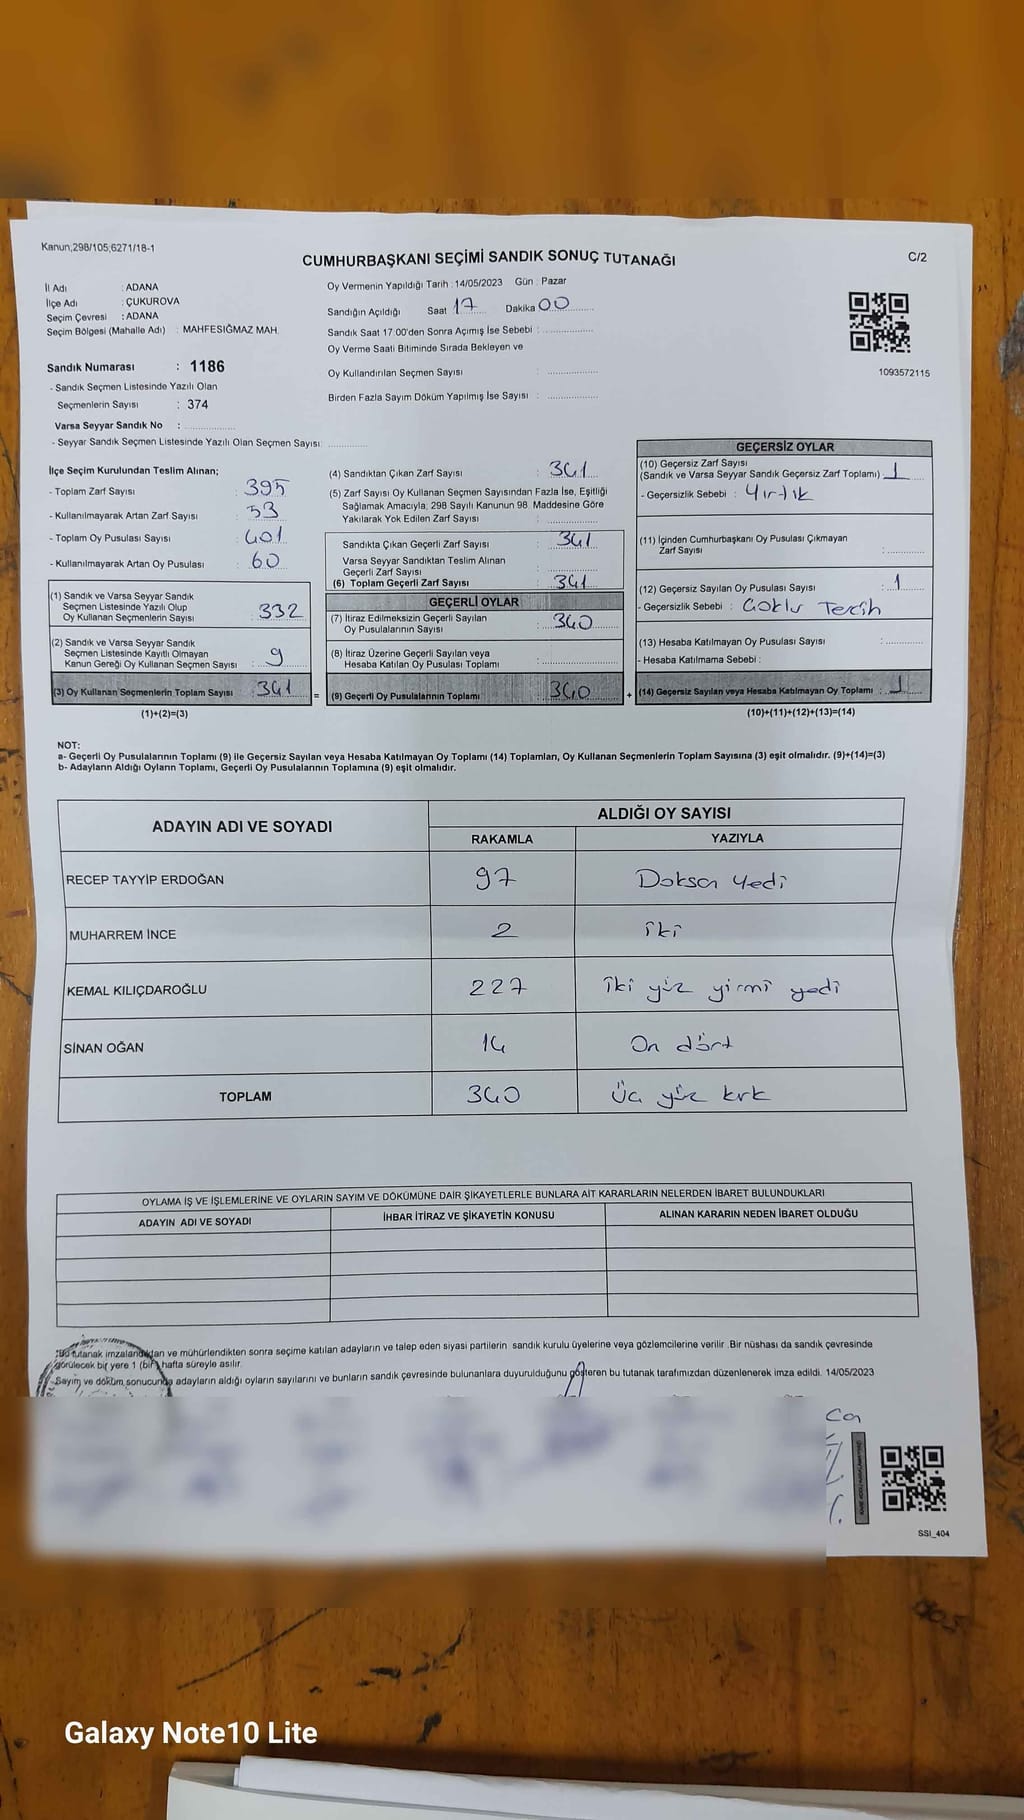 Kanun;298/105;6271/18-1
CUMHURBAŞKANI SEÇİMİ SANDIK SONUÇ TUTANAĞI
C/2
İl Adı : ADANA
İlçe Adı : ÇUKUROVA
Seçim Çevresi : ADANA
Seçim Bölgesi (Mahalle Adı) : MAHFESIĞMAZ MAH.
Sandık Numarası : 1186
- Sandık Seçmen Listesinde Yazılı Olan
Seçmenlerin Sayısı : 374
Varsa Seyyar Sandık No : ..................
- Seyyar Sandık Seçmen Listesinde Yazılı Olan Seçmen Sayısı: ..............
Oy Vermenin Yapıldığı Tarih : 14/05/2023 Gün : Pazar
Sandığın Açıldığı Saat 17 Dakika 00
Sandık Saat 17.00'den Sonra Açımış İse Sebebi : ..................
Oy Verme Saati Bitiminde Sırada Bekleyen ve
Oy Kullandırılan Seçmen Sayısı : ..................
Birden Fazla Sayım Döküm Yapılmış İse Sayısı : ..................
1093572115
İlçe Seçim Kurulundan Teslim Alınan;
- Toplam Zarf Sayısı : 395
- Kullanılmayarak Artan Zarf Sayısı : 53
- Toplam Oy Pusulası Sayısı : 401
- Kullanılmayarak Artan Oy Pusulası : 60
(1) Sandık ve Varsa Seyyar Sandık
Seçmen Listesinde Yazılı Olup
Oy Kullanan Seçmenlerin Sayısı : 332
(2) Sandık ve Varsa Seyyar Sandık
Seçmen Listesinde Kayıtlı Olmayan
Kanun Gereği Oy Kullanan Seçmen Sayısı : 9
(3) Oy Kullanan Seçmenlerin Toplam Sayısı : 341
(1)+(2)=(3)
(4) Sandıktan Çıkan Zarf Sayısı : 341
(5) Zarf Sayısı Oy Kullanan Seçmen Sayısından Fazla İse, Eşitliği
Sağlamak Amacıyla; 298 Sayılı Kanunun 98. Maddesine Göre
Yakılarak Yok Edilen Zarf Sayısı : ..................
Sandıkta Çıkan Geçerli Zarf Sayısı : 341
Varsa Seyyar Sandıktan Teslim Alınan
Geçerli Zarf Sayısı : ..................
(6) Toplam Geçerli Zarf Sayısı : 341
GEÇERLİ OYLAR
(7) İtiraz Edilmeksizin Geçerli Sayılan
Oy Pusulalarının Sayısı : 340
(8) İtiraz Üzerine Geçerli Sayılan veya
Hesaba Katılan Oy Pusulası Toplamı : ..................
= (9) Geçerli Oy Pusulalarının Toplamı : 340
GEÇERSİZ OYLAR
(10) Geçersiz Zarf Sayısı
(Sandık ve Varsa Seyyar Sandık Geçersiz Zarf Toplamı) : 1
- Geçersizlik Sebebi : Yırtık
(11) İçinden Cumhurbaşkanı Oy Pusulası Çıkmayan
Zarf Sayısı : ..................
(12) Geçersiz Sayılan Oy Pusulası Sayısı : 1
- Geçersizlik Sebebi : Çoklu Tercih
(13) Hesaba Katılmayan Oy Pusulası Sayısı : ..................
- Hesaba Katılmama Sebebi :
+ (14) Geçersiz Sayılan veya Hesaba Katılmayan Oy Toplamı : 1
(10)+(11)+(12)+(13)=(14)
NOT:
a- Geçerli Oy Pusulalarının Toplamı (9) ile Geçersiz Sayılan veya Hesaba Katılmayan Oy Toplamı (14) Toplamları, Oy Kullanan Seçmenlerin Toplam Sayısına (3) eşit olmalıdır. (9)+(14)=(3)
b- Adayların Aldığı Oyların Toplamı, Geçerli Oy Pusulalarının Toplamına (9) eşit olmalıdır.
ADAYIN ADI VE SOYADI ALDIĞI OY SAYISI
RAKAMLA YAZIYLA
RECEP TAYYİP ERDOĞAN 97 Doksan Yedi
MUHARREM İNCE 2 iki
KEMAL KILIÇDAROĞLU 227 iki yüz yirmi yedi
SİNAN OĞAN 14 On dört
TOPLAM 340 Üç yüz kırk
OYLAMA İŞ VE İŞLEMLERİNE VE OYLARIN SAYIM VE DÖKÜMÜNE DAİR ŞİKAYETLERLE BUNLARA AİT KARARLARIN NELERDEN İBARET BULUNDUKLARI
ADAYIN ADI VE SOYADI İHBAR İTİRAZ VE ŞİKAYETİN KONUSU ALINAN KARARIN NEDEN İBARET OLDUĞU
Bu tutanak imzalandıktan ve mühürlendikten sonra seçime katılan adayların ve talep eden siyasi partilerin sandık kurulu üyelerine veya gözlemcilerine verilir. Bir nüshası da sandık çevresinde
görülecek bir yere 1 (bir) hafta süreyle asılır.
Sayım ve döküm sonucunda adayların aldığı oyların sayılarını ve bunların sandık çevresinde bulunanlara duyurulduğunu gösteren bu tutanak tarafımızdan düzenlenerek imza edildi. 14/05/2023
SSI_404
Galaxy Note10 Lite